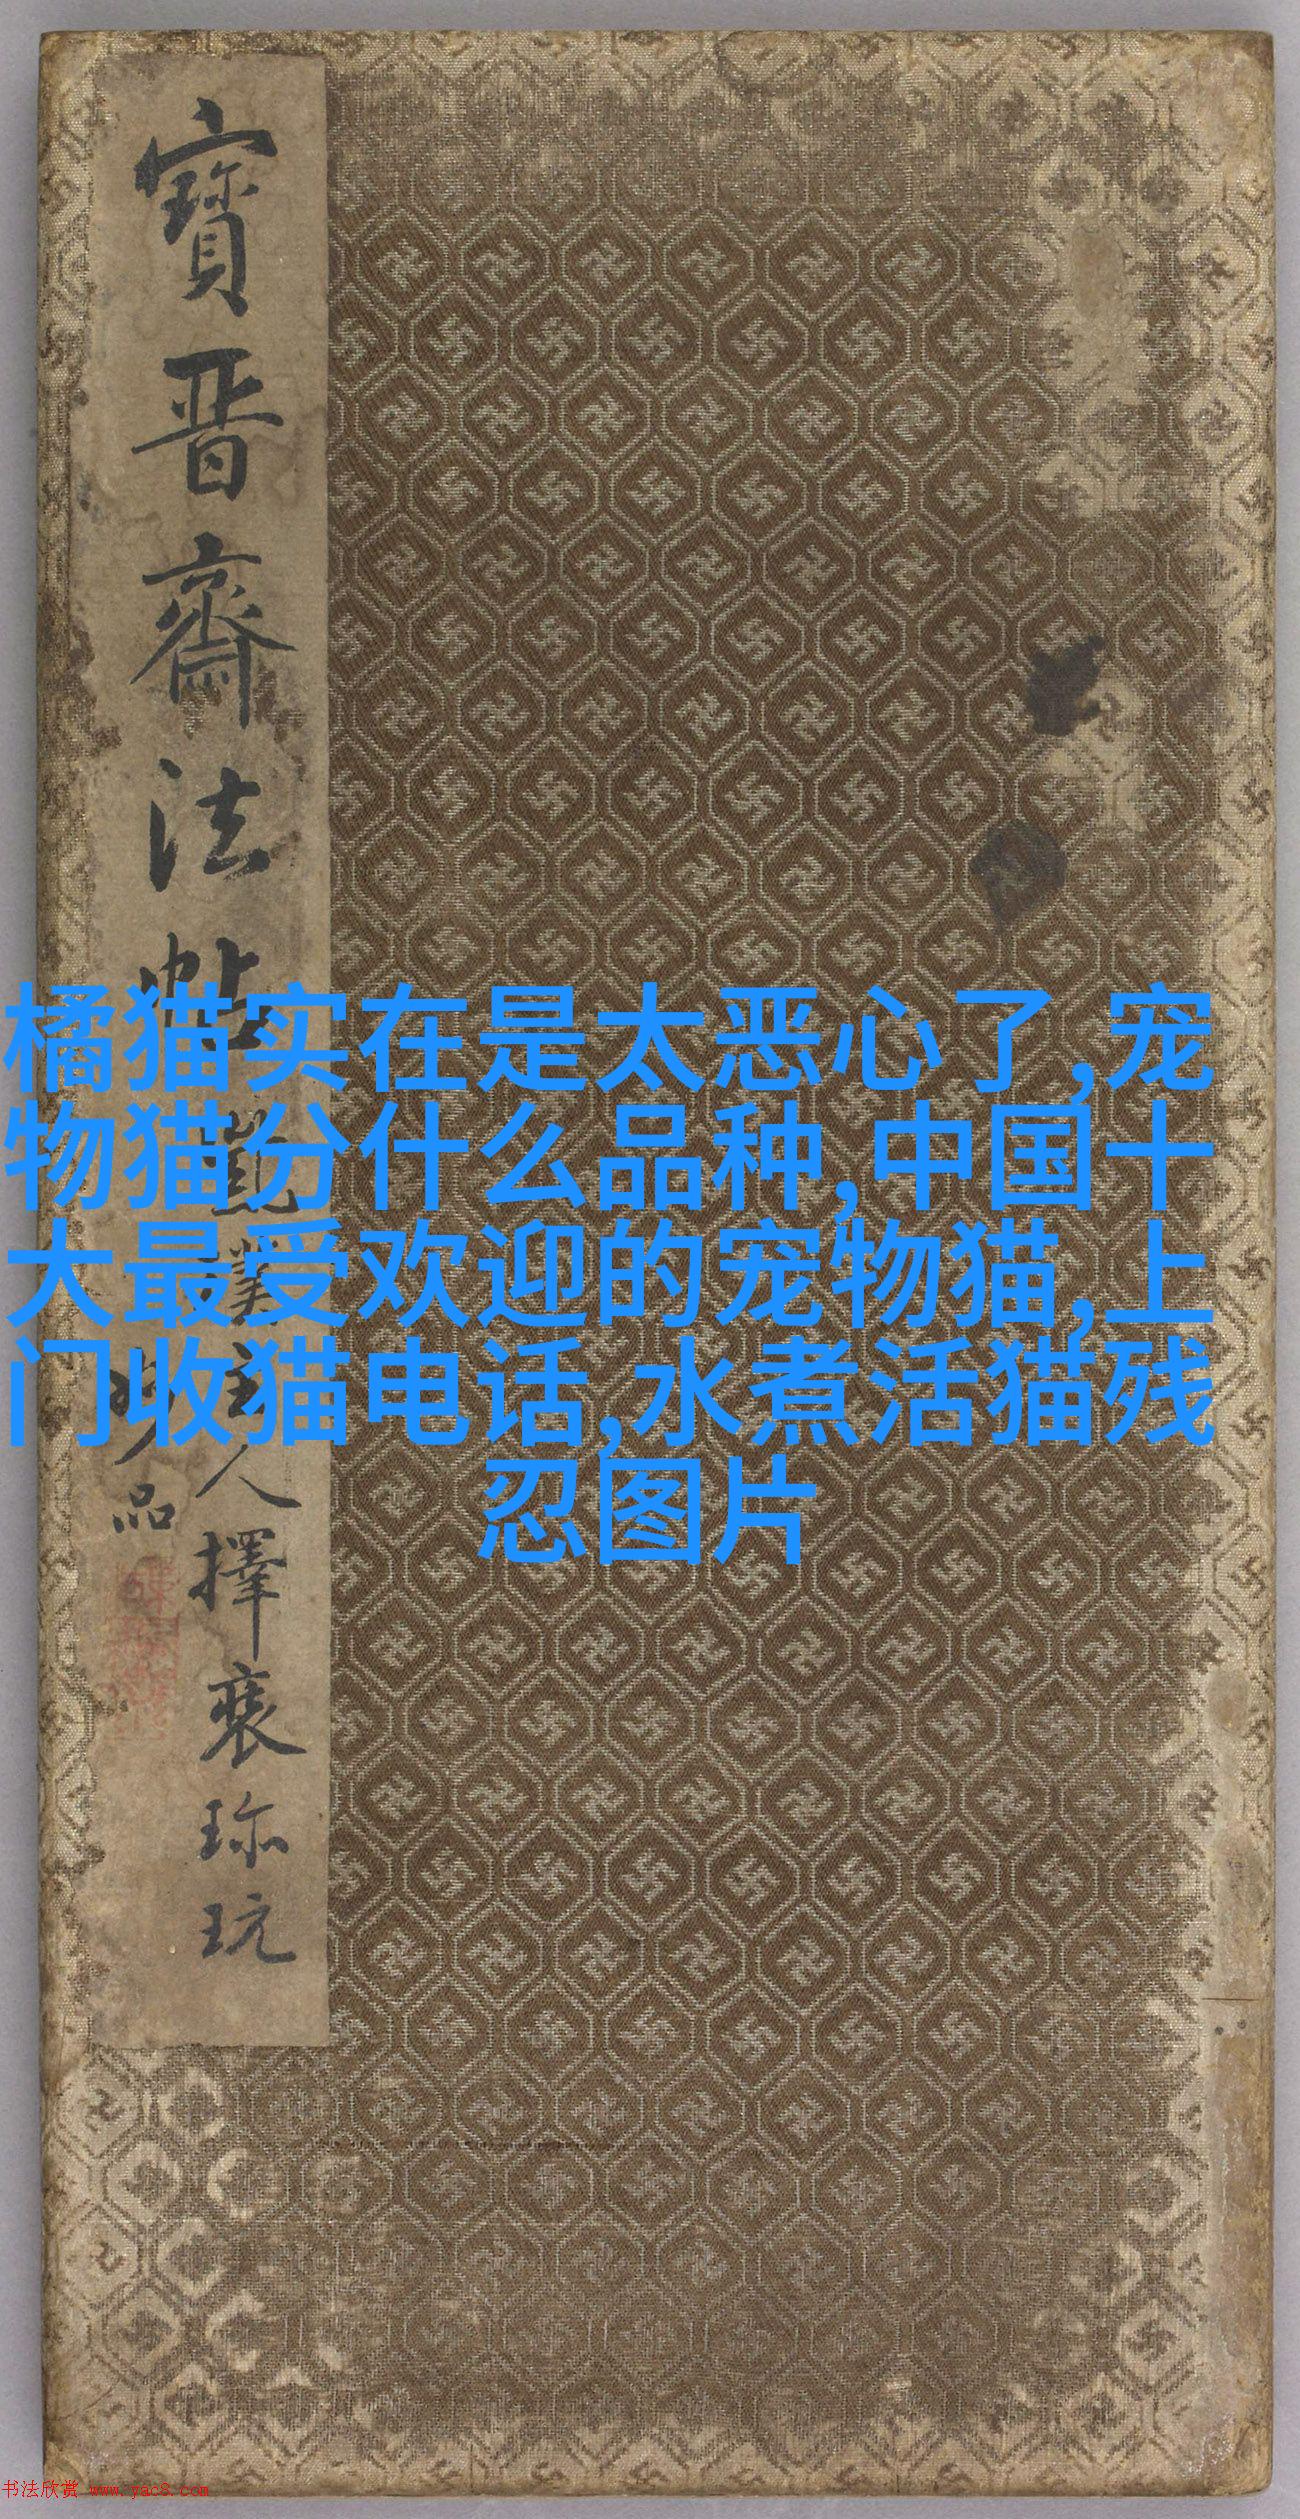 寳晋齋法帖
人擇裴珎玩
品
橘猫实在是太恶心了,宠
物猫分什么品种,中国十
大最受欢迎的宠物猫,上
门收猫电话,水煮活猫残
忍图片
书法欣赏 www.yac8.com